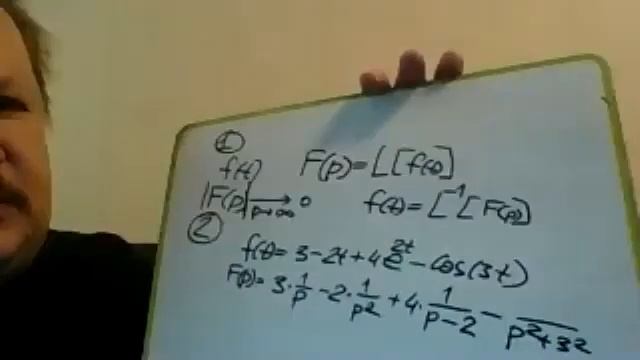 ①
f(t) F(p) = L[f(t)]
|F(p)| → 0 p→∞ f(t) = L⁻¹[F(p)]
②
f(t) = 3 - 2t + 4e^{2t} - cos(3t)
F(p) = 3·1/p - 2·1/p² + 4·1/(p-2) - /(p²+3²)